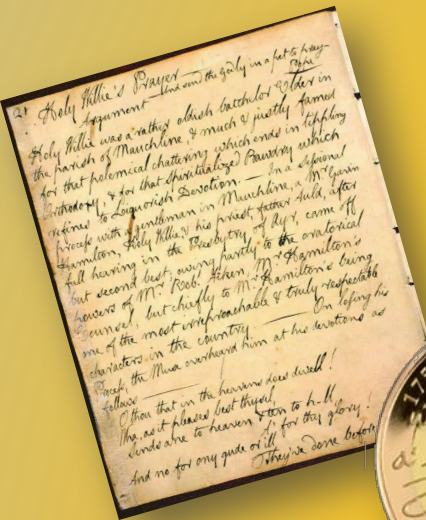 Holy Willie's Prayer —
And send the Godly in a pet to pray —
Argument Pope
Holy Willie was a rather oldish batchelor Elder in
the parish of Mauchline, & much & justly famed
for that polemical chattering which ends in tippling
Orthodoxy, & for that spiritualized Bawdry which
refines to Liquorish Devotion. — In a Sessional
process with a gentleman in Mauchline, a Mr Gavin
Hamilton, Holy Willie & his priest, father Auld, after
full hearing in the Presbytry of Ayr, came off
but second best, owing partly to the oratorical
powers of Mr Robt Aiken, Mr Hamilton's
Counsel, but chiefly to Mr Hamilton's being
one of the most irreproachable & truly respectable
characters in the country — On losing his
Process, the Muse overheard him at his devotions as
follows —
O thou that in the heavens does dwell!
Wha, as it pleases best thysel,
Sends ane to heaven & ten to h-ll,
A' for thy glory!
And no for ony gude or ill
They've done before
175